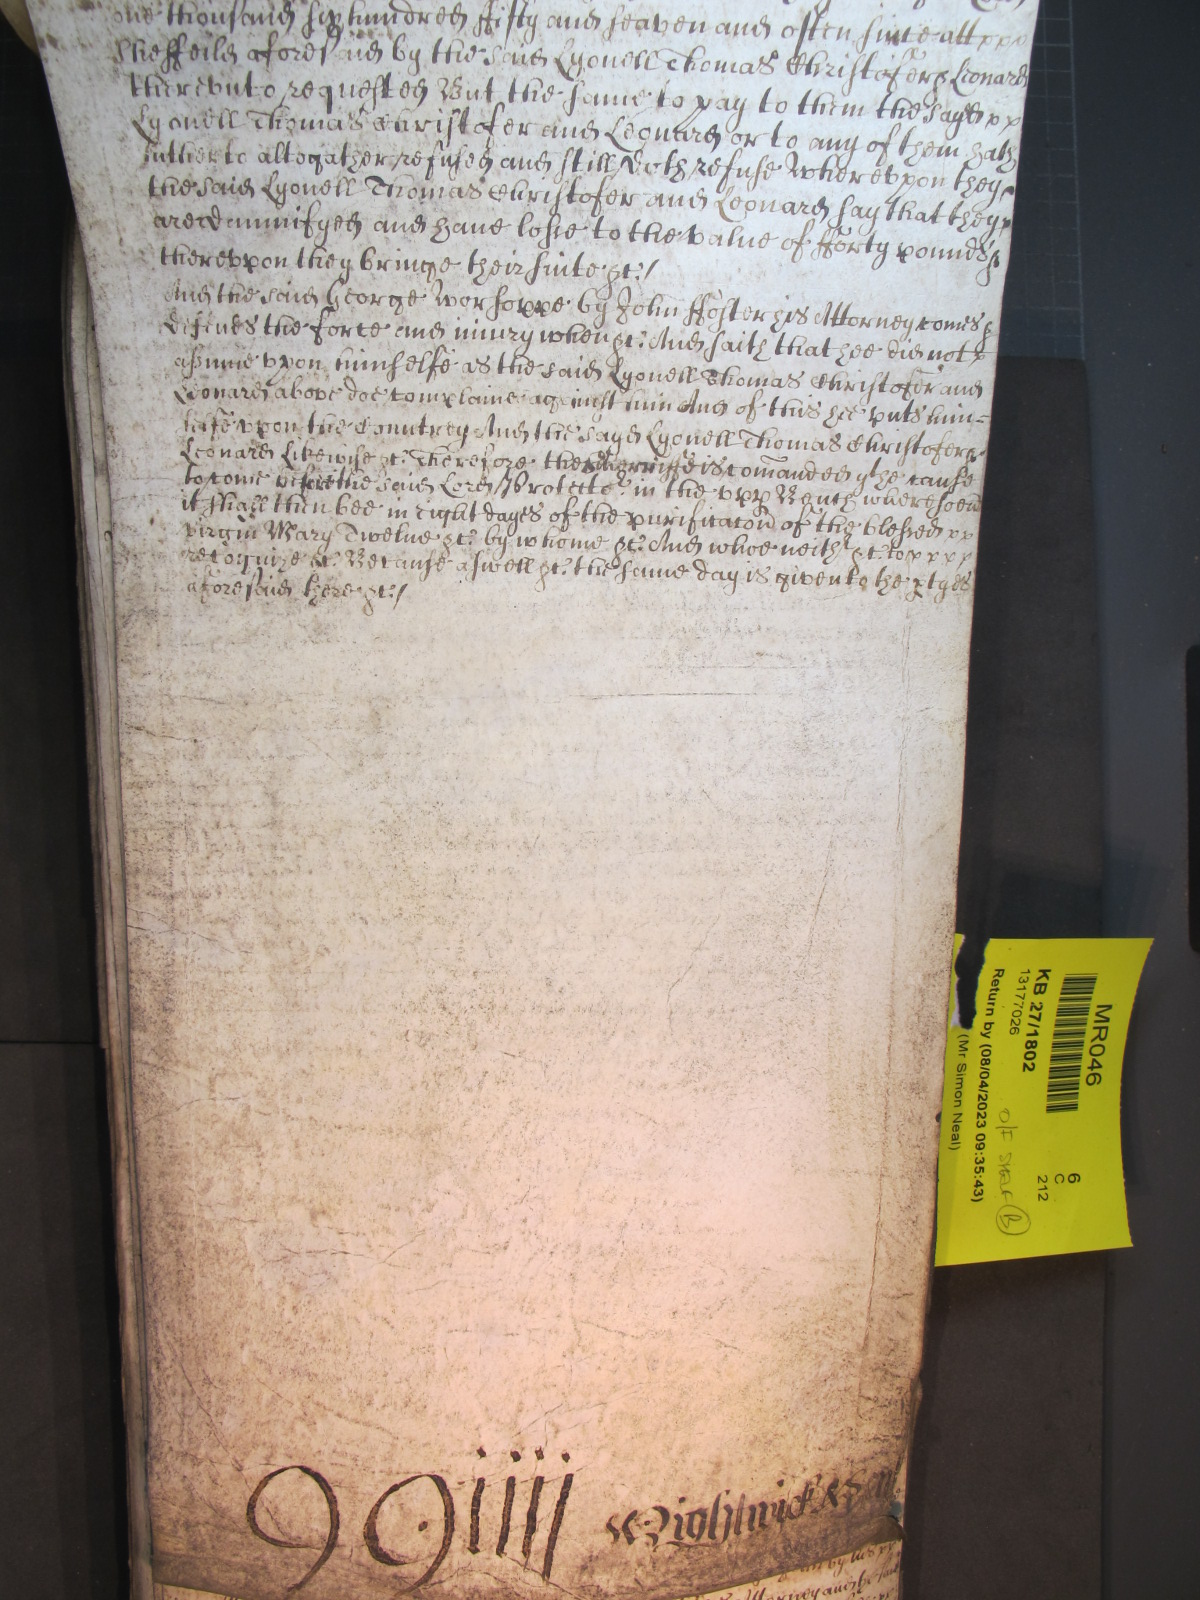 one thousand six hundred fifty and seaven and often since att
Sheffeild aforesaid by the said Lyonell Thomas Christofer & Leonard
thereunto requested But the same to pay to them the sayd
Lyonell Thomas Christofer and Leonard or to any of them hath
hitherto altogather refused and still doth refuse Whereupon they
the said Lyonell Thomas Christofer and Leonard say that they
are damnifyed and have losse to the value of fforty pounds &
thereupon they bringe their suite &c:/
And the said George Worsoppe by John ffoster his Attorney comes &
defends the force and iniury when &c: And saith that hee did not
assume upon himselfe as the said Lyonell Thomas Christofer and
Leonard above doe complaine against him And of this hee puts him-
selfe upon the Countrey And the sayd Lyonell Thomas Christofer &
Leonard Likewise &c: Therefore the Sherriffe is comanded yt he cause
to come before the said Lord Protector in the upp Bench wheresoev
it shall then bee in eight dayes of the purificacon of the blessed
virgin Mary Twelve &c: by whome &c: And whoe neith &c: to
recognize &c: Because aswell &c: the same day is given to the ptyes
aforesaid there &c:/
Wightwicke &
MR046
KB 27/1802
13177026
Return by (08/04/2023 09:35:43)
(Mr Simon Neal)
6
C
212
O/F
B